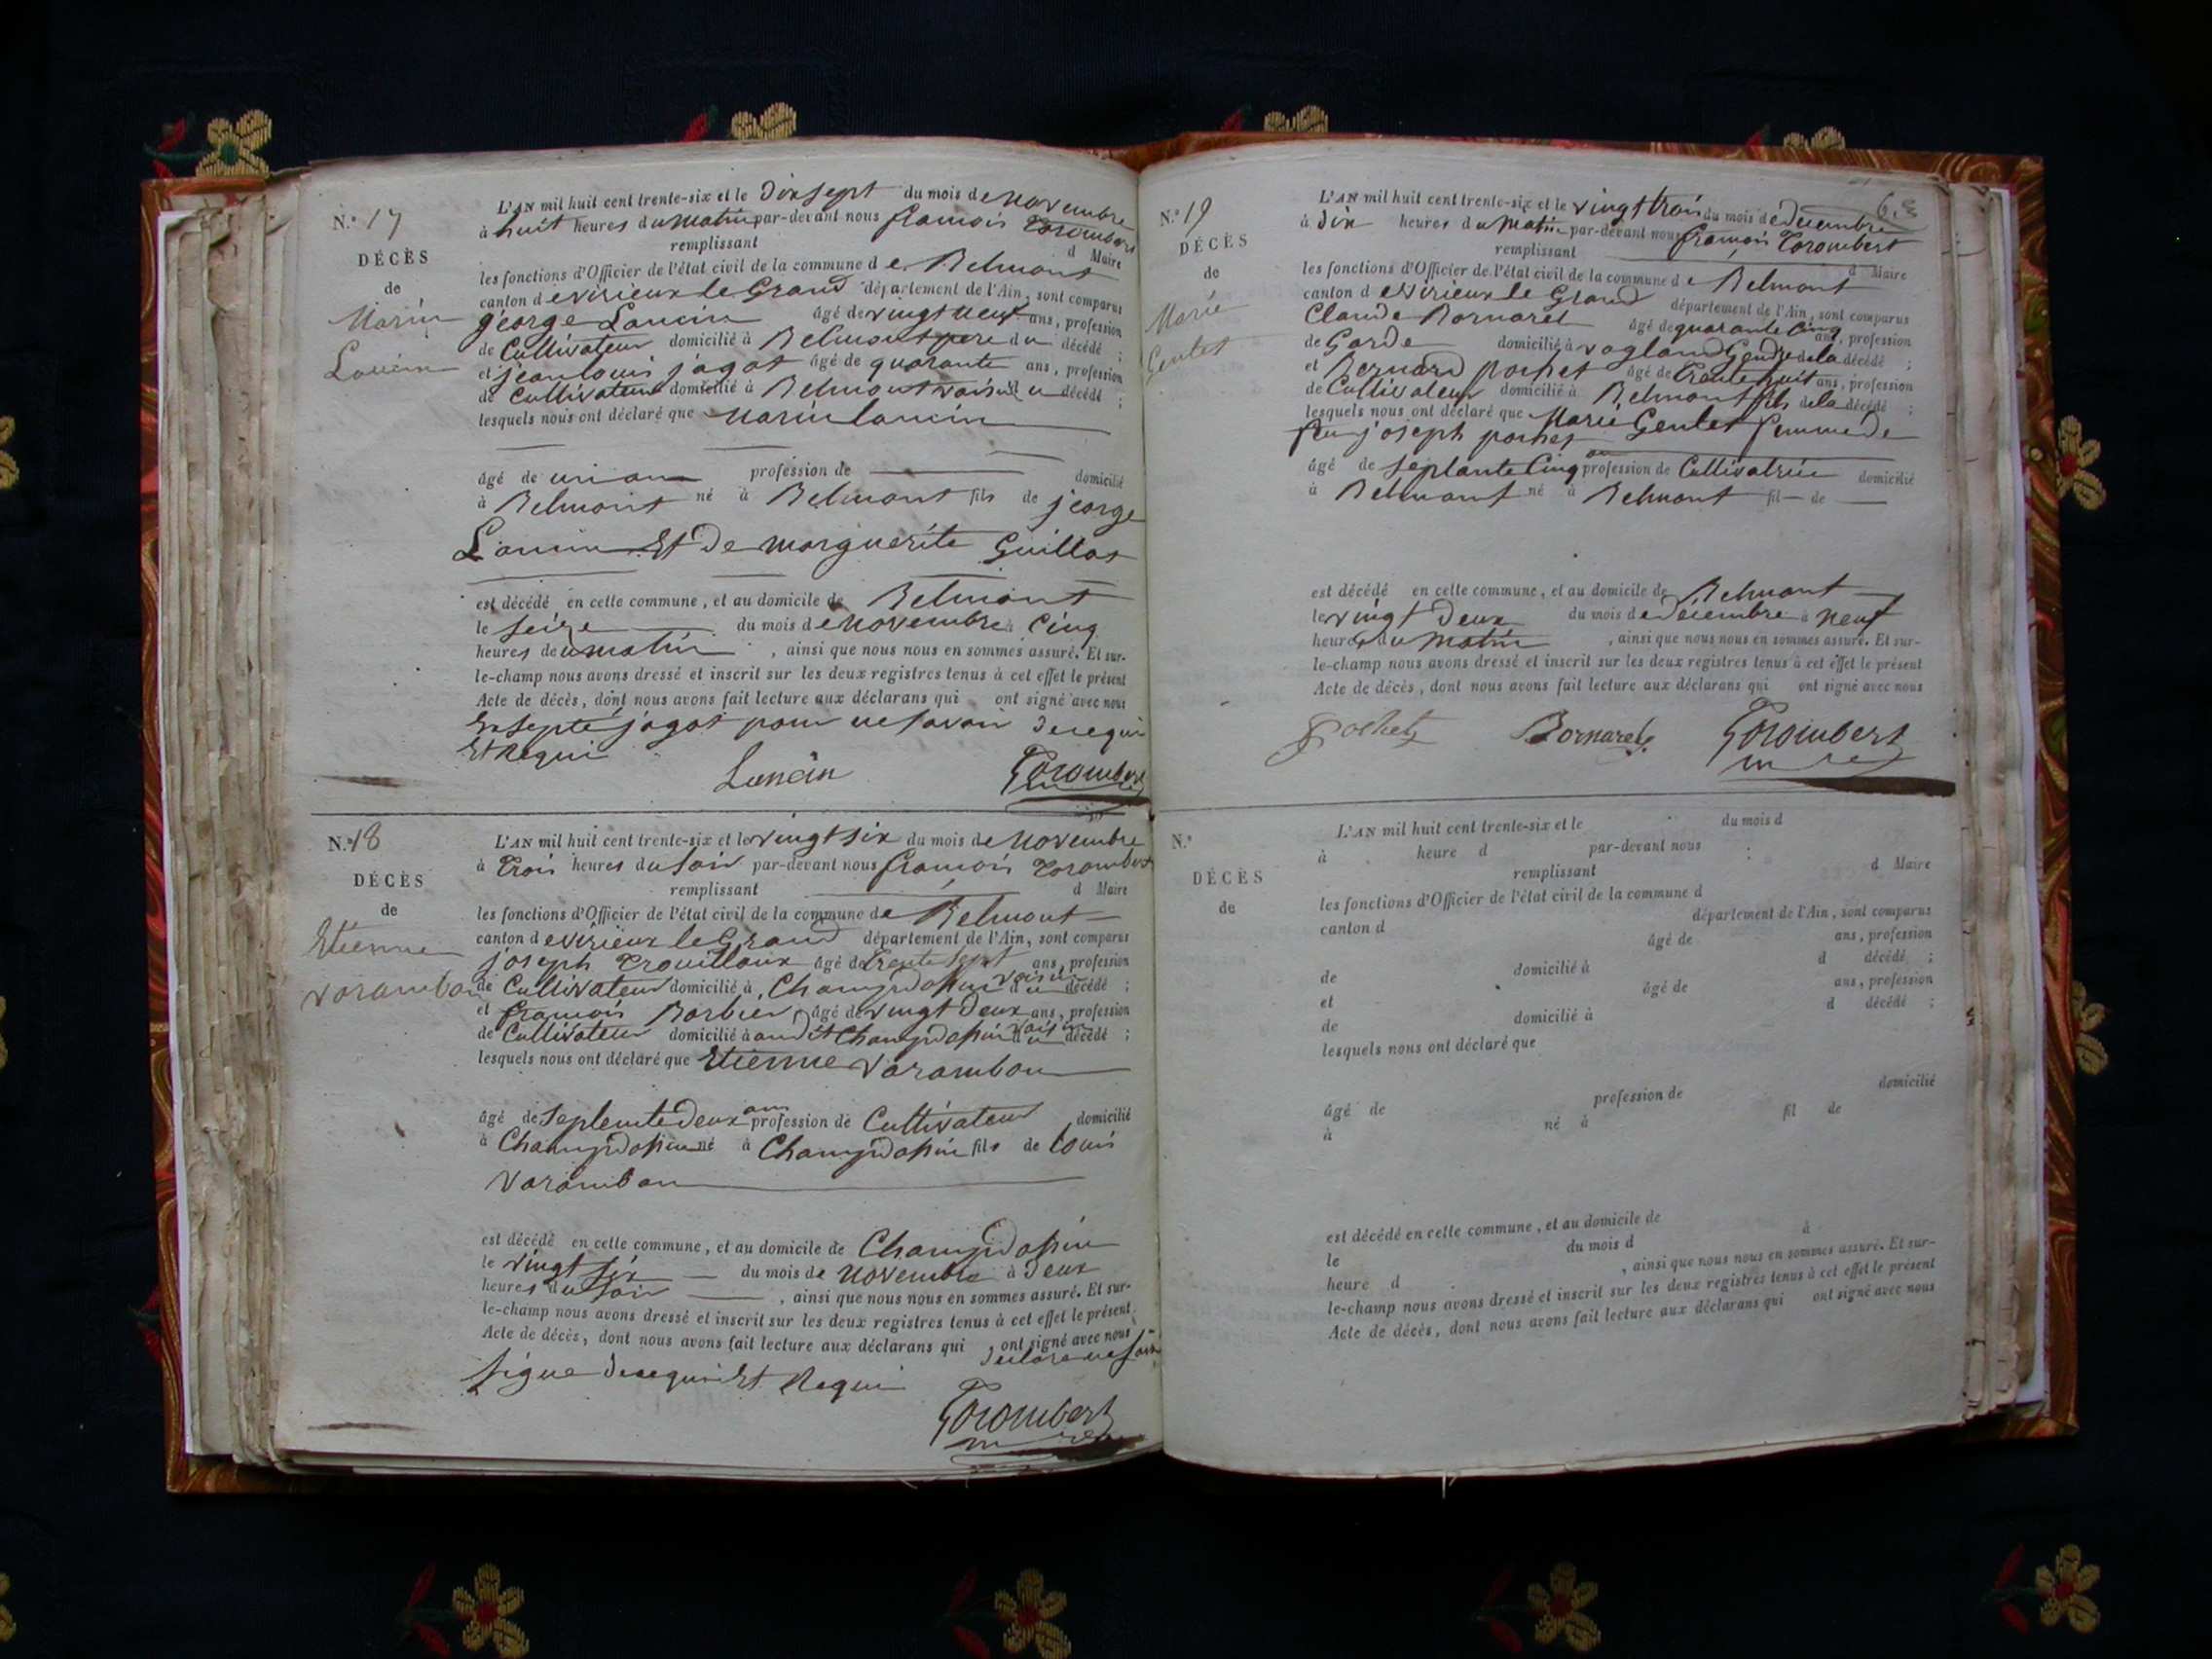 N.° 17
DÉCÈS
de
Marin
Lancin
L'AN mil huit cent trente-six et le Dix sept du mois de Novembre
à huit heures du Matin par-devant nous françois Corombert
remplissant d Maire
les fonctions d'Officier de l'état civil de la commune de Belmont
canton de virieux le Grand département de l'Ain, sont comparus
george Lancin âgé de vingt neuf ans, profession
de Cultivateur domicilié à Belmont pere du décédé ;
et jean louis jagot âgé de quarante ans, profession
de Cultivateur domicilié à Belmont voisin du décédé ;
lesquels nous ont déclaré que Marin Lancin
âgé de un an profession de domicilié
à Belmont né à Belmont fils de jeorge
Lancin Et De marguerite Guillot
est décédé en cette commune, et au domicile de Belmont
le seize du mois de Novembre à Cinq
heures de u matin, ainsi que nous nous en sommes assuré. Et sur-
le-champ nous avons dressé et inscrit sur les deux registres tenus à cet effet le présent
Acte de décès, dont nous avons fait lecture aux déclarans qui ont signé avec nous
Exsepté jagot pour ne savoir De cequi
Et Requi
Lancin Corombert
N.° 18
DÉCÈS
de
Etienne
varambon
L'AN mil huit cent trente-six et le vingt six du mois de Novembre
à Trois heures du soir par-devant nous françois Corombert
remplissant d Maire
les fonctions d'Officier de l'état civil de la commune de Belmont
canton de virieux le Grand département de l'Ain, sont comparus
joseph Trouilloux âgé de Trente sept ans, profession
de Cultivateur domicilié à Champdossin voisin du décédé ;
et françois Barbier âgé de vingt Deux ans, profession
de Cultivateur domicilié à au dit Champdossin voisin du décédé ;
lesquels nous ont déclaré que Etienne Varambon
âgé de septente deux ans profession de Cultivateur domicilié
à Champdossin né à Champdossin fils de louis
Varambon
est décédé en cette commune, et au domicile de Champdossin
le vingt six du mois de Novembre à Deux
heures du soir, ainsi que nous nous en sommes assuré. Et sur-
le-champ nous avons dressé et inscrit sur les deux registres tenus à cet effet le présent
Acte de décès, dont nous avons fait lecture aux déclarans qui ont signé avec nous
signe De cequi Et Requi
Corombert
N.° 19
DÉCÈS
de
Marie
Gentet
L'AN mil huit cent trente-six et le vingt trois du mois de Decembre
à Dix heures du Matin par-devant nous françois Corombert
remplissant d Maire
les fonctions d'Officier de l'état civil de la commune de Belmont
canton de virieux le Grand département de l'Ain, sont comparus
Claude Bornarel âgé de quarante Cinq ans, profession
de Garde domicilié à vogland Gendre de la décédé ;
et Bernard pochet âgé de Trente huit ans, profession
de Cultivateur domicilié à Belmont fils de la décédé ;
lesquels nous ont déclaré que Marie Gentet femme de
feu joseph pochet
âgé de septante Cinq an profession de Cultivatrice domicilié
à Belmont né à Belmont fil de
est décédé en cette commune, et au domicile de Belmont
le vingt Deux du mois de Decembre à Neuf
heures du Matin, ainsi que nous nous en sommes assuré. Et sur-
le-champ nous avons dressé et inscrit sur les deux registres tenus à cet effet le présent
Acte de décès, dont nous avons fait lecture aux déclarans qui ont signé avec nous
pochet Bornarel Corombert
N.°
DÉCÈS
de
L'AN mil huit cent trente-six et le du mois d
à heure d par-devant nous
remplissant d Maire
les fonctions d'Officier de l'état civil de la commune d
canton d département de l'Ain, sont comparus
âgé de ans, profession
de domicilié à d décédé ;
et âgé de ans, profession
de domicilié à d décédé ;
lesquels nous ont déclaré que
âgé de profession de domicilié
à né à fil de
est décédé en cette commune, et au domicile de
le du mois d à
heure d , ainsi que nous nous en sommes assuré. Et sur-
le-champ nous avons dressé et inscrit sur les deux registres tenus à cet effet le présent
Acte de décès, dont nous avons fait lecture aux déclarans qui ont signé avec nous